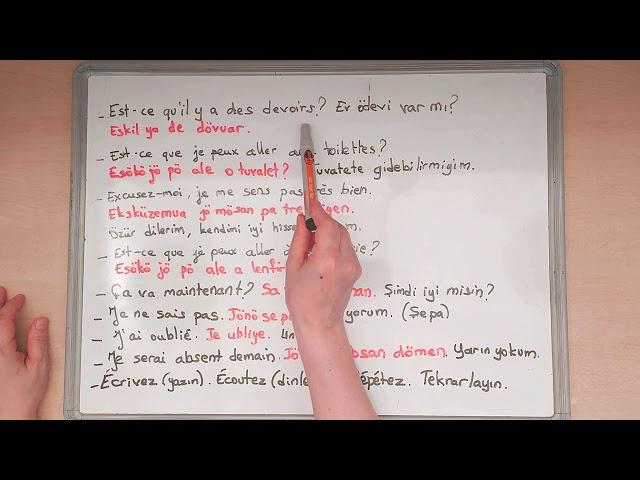 - Est-ce qu'il y a des devoirs? Ev ödevi var mı?
Eskil ya de dövuar.
- Est-ce que je peux aller toilettes?
Esökö jö pö ale o tuvalet? Tuvalete gidebilirmiyim.
- Excusez-moi, je me sens pas très bien.
Eksküzemua jö mösan pa tre
Özür dilerim, kendimi iyi
- Est-ce que je peux aller
Esökö jö pö ale a
- Ça va maintenant? Sa Şimdi iyi misin?
- Je ne sais pas. Jönö se (Şepa)
- J'ai oublié. Je ubliye.
- Je serai absent demain. dömen. Yarın yokum.
- Écrivez (yazın). Écoutez Répétez. Teknarlayın.